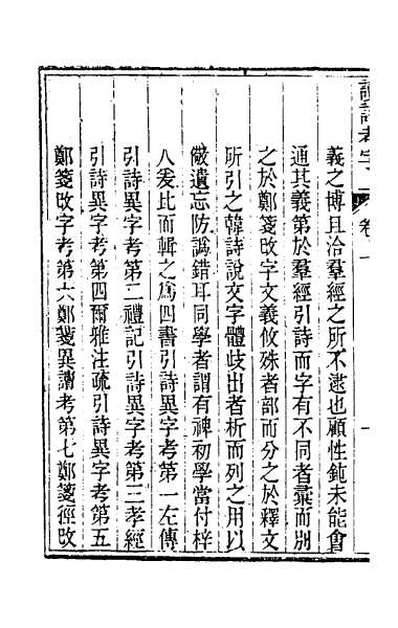 讀詩考字 卷一 一
義之博且洽羣經之所不逮也顧性鈍未能會
通其義第於羣經引詩而字有不同者彙而別
之於鄭箋改字文義攸殊者部而分之於釋文
所引之韓詩說文字體歧出者析而列之用以
儆遺忘防譌錯耳同學者謂有裨初學當付梓
人爰比而輯之爲四書引詩異字考第一左傳
引詩異字考第二禮記引詩異字考第三孝經
引詩異字考第四爾雅注疏引詩異字考第五
鄭箋改字考第六鄭箋異讀考第七鄭箋徑改